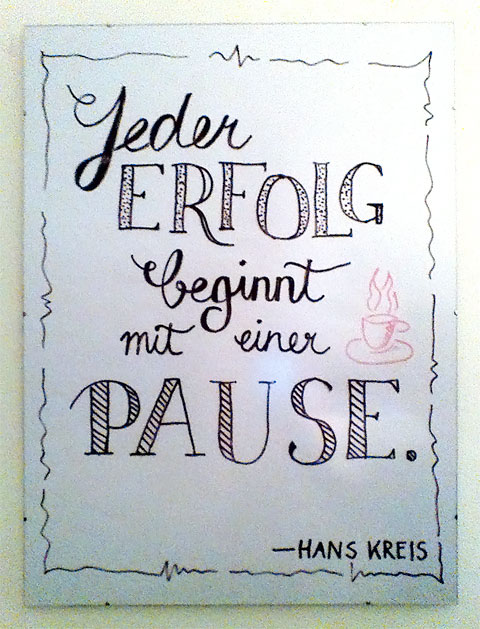 Jeder
ERFOLG
beginnt
mit einer
PAUSE.
—HANS KREIS